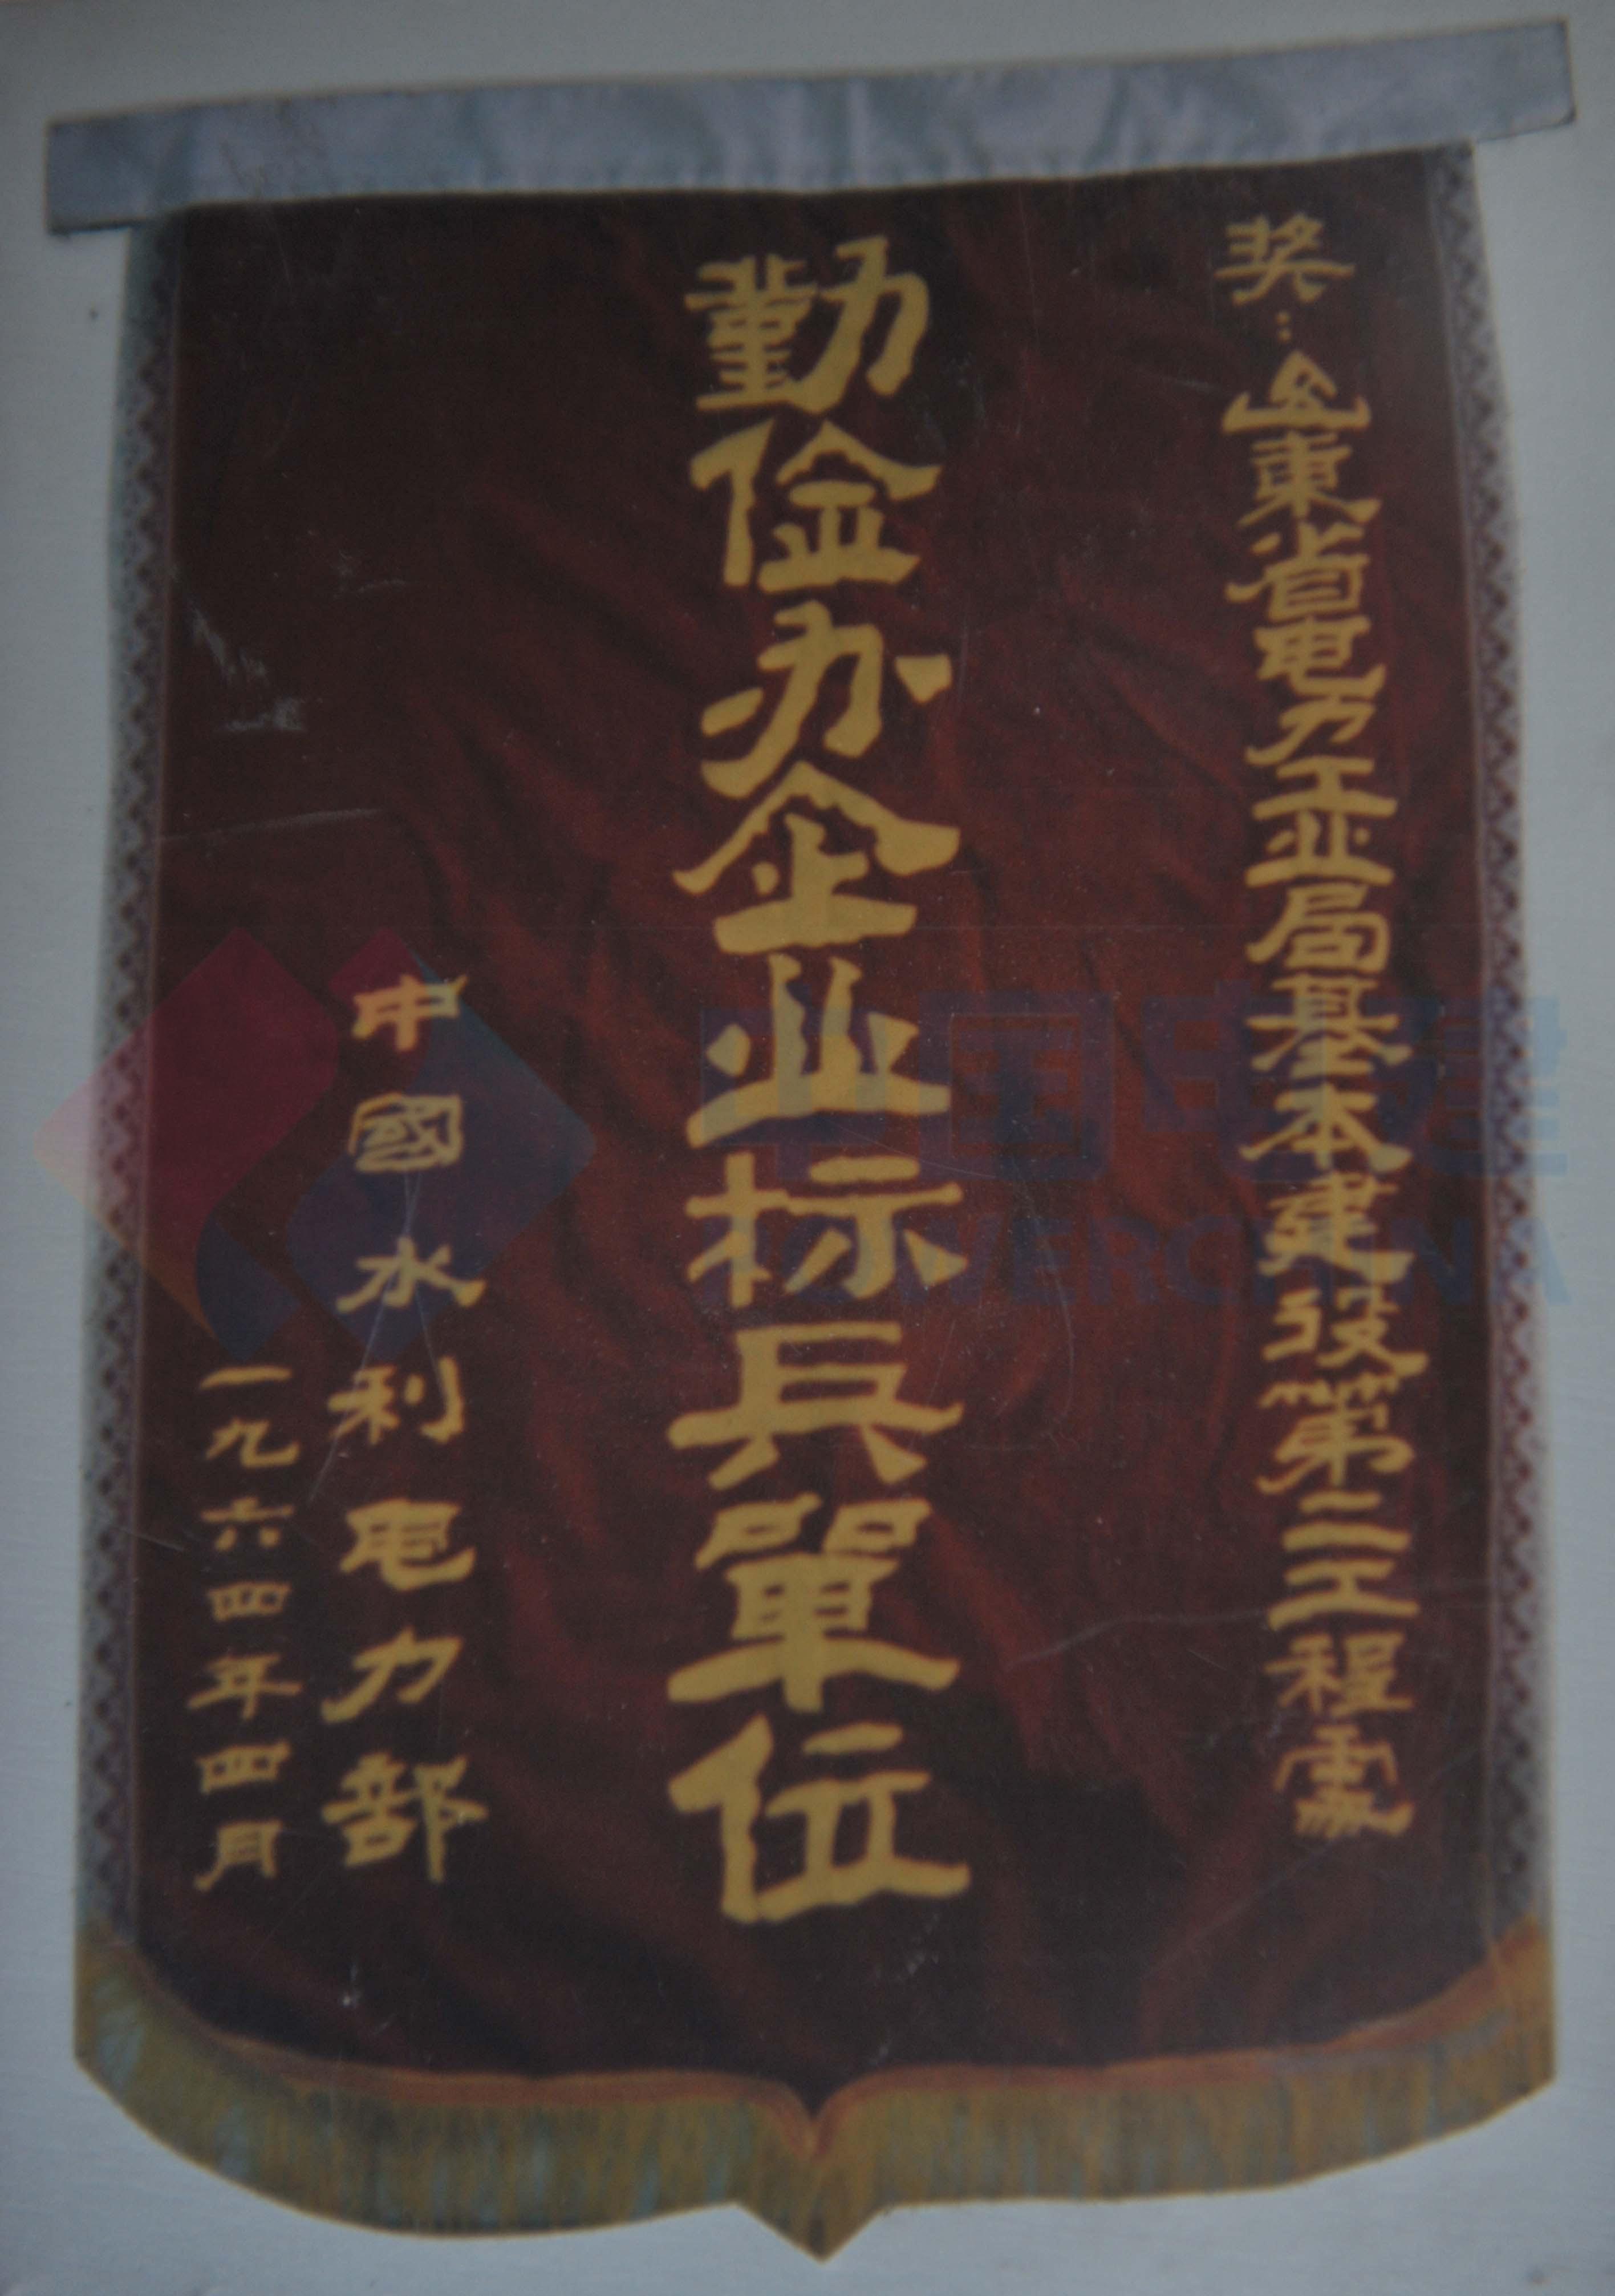 奖：山東省电力工业局基本建设第二工程處
勤俭办企业标兵單位
中國水利电力部
一九六四年四月
中国电建
POWERCHINA